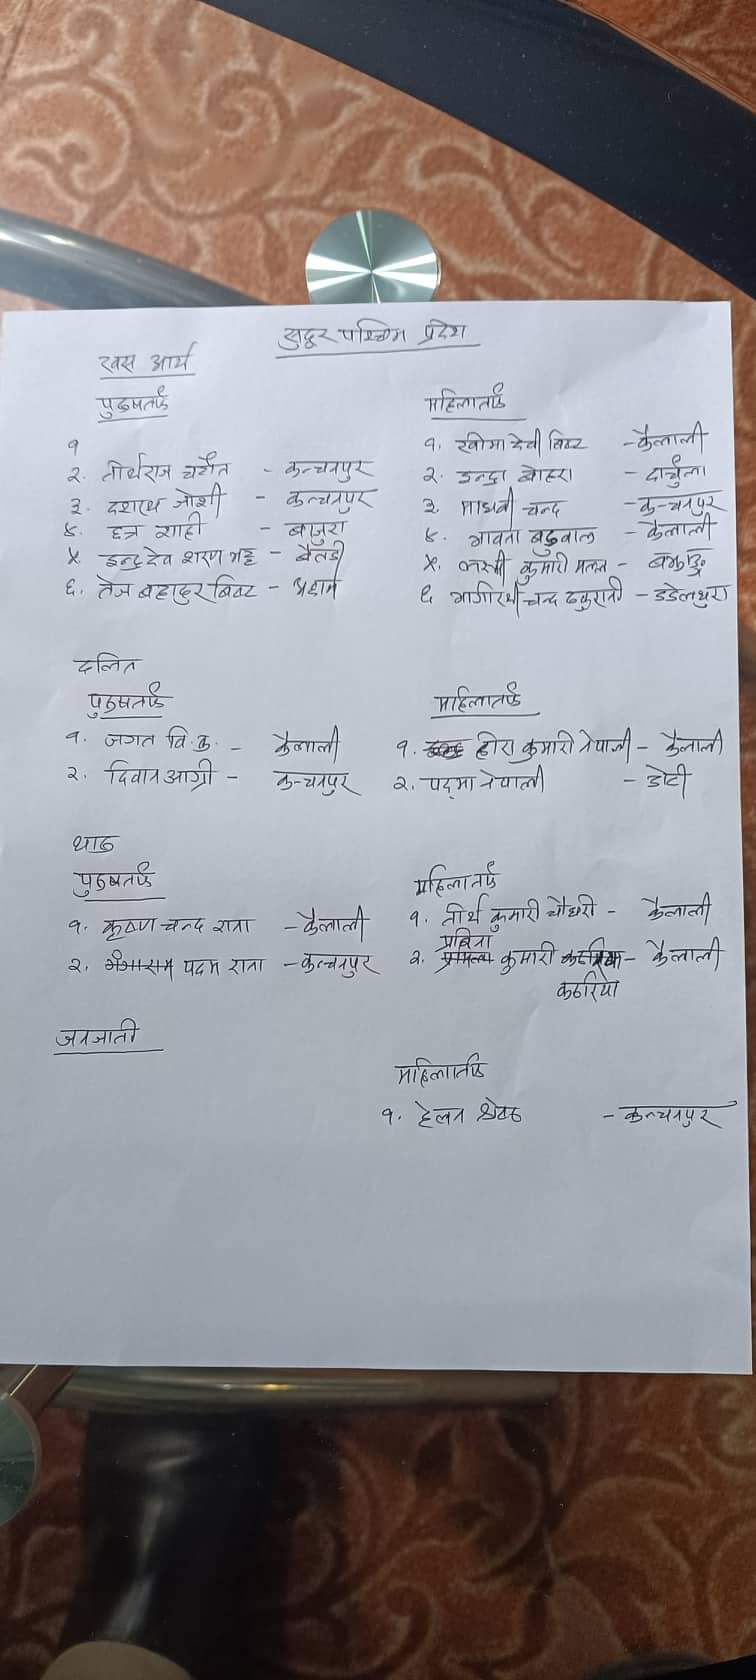 सुदुर पश्चिम प्रदेश
खस आर्य
पुरुषतर्फ
१
२. तीर्थराज - कन्चनपुर
३. दशरथ जोशी - कन्चनपुर
४. छत्र शाही - बाजुरा
५. इन्द्रदेव शरण भट्ट - बैतडी
६. तेज बहादुर बिष्ट - अछाम
महिलातर्फ
१. खीमा देवी बिष्ट - कैलाली
२. इन्द्रा बोहरा - दार्चुला
३. माधवी चन्द - कन्चनपुर
४. बडुवाल - कैलाली
५. कुमारी -
६ भागीरथी चन्द ठकुरानी - डडेलधुरा
दलित
पुरुषतर्फ
१. जगत वि.क. - कैलाली
२. आग्री - कन्चनपुर
महिलातर्फ
१. हीरा कुमारी नेपाली - कैलाली
२. पद्मा नेपाली - डोटी
थारु
पुरुषतर्फ
१. कृष्ण चन्द राना - कैलाली
२. पदम राना - कन्चनपुर
महिलातर्फ
१. तीर्थ कुमारी चौधरी - कैलाली
प्रविना
२. कुमारी - कैलाली
कठरिया
जनजाती
महिलातर्फ
१. हेलन श्रेष्ठ - कन्चनपुर